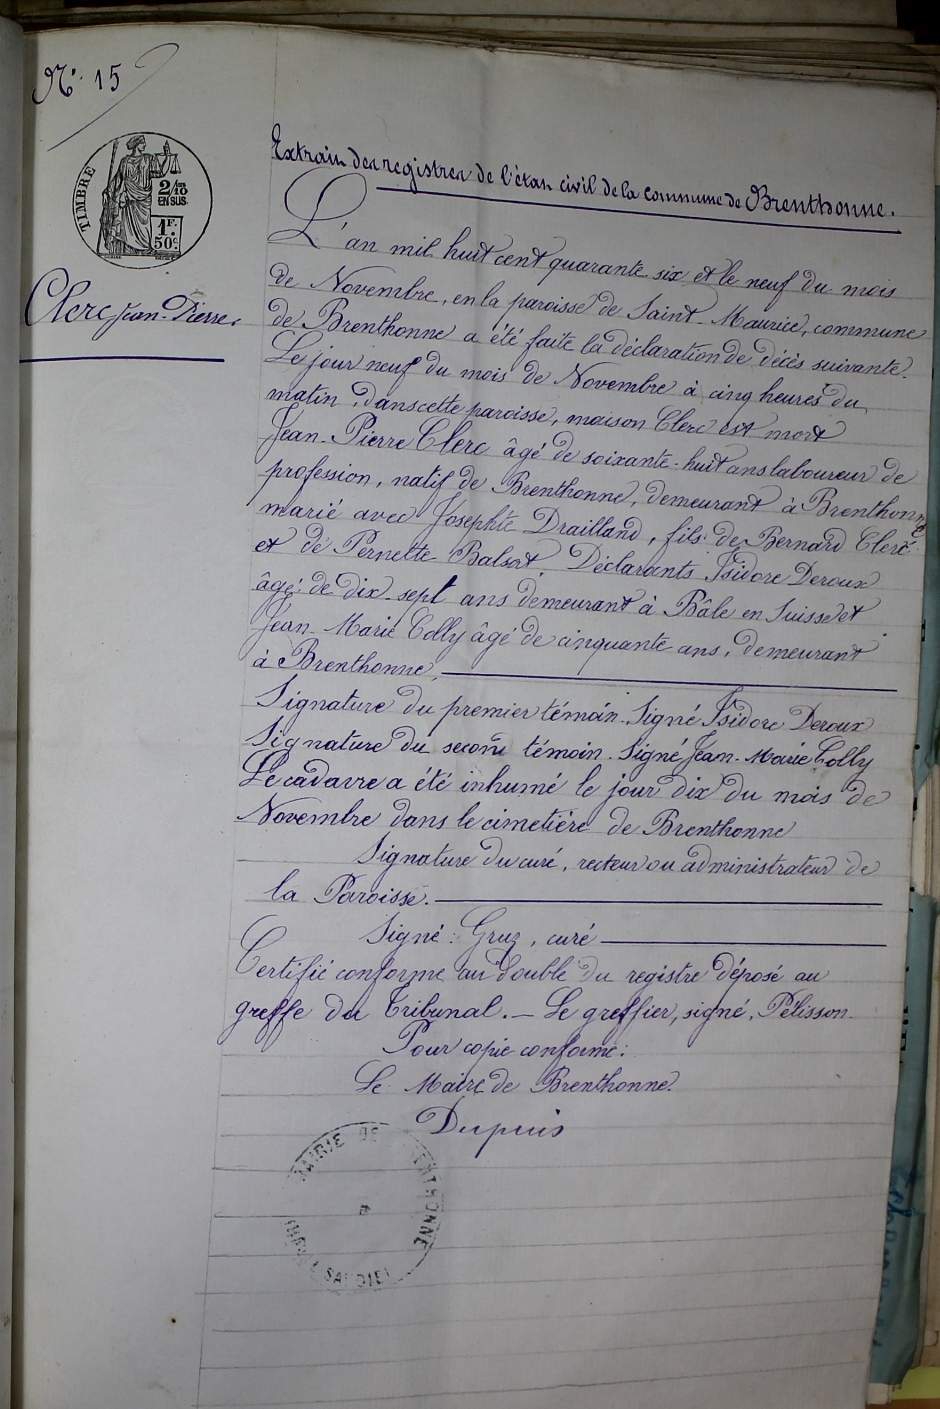 N° 15
TIMBRE
2/10
EN SUS
1F.
50c.
Extrait des registres de l'état civil de la commune de Brenthonne.
Clerc Jean-Pierre.
L'an mil huit cent quarante six et le neuf du mois
de Novembre, en la paroisse de Saint-Maurice, commune
de Brenthonne a été faite la déclaration de décès suivante.
Le jour neuf du mois de Novembre à cinq heures du
matin, dans cette paroisse, maison Clerc est mort
Jean-Pierre Clerc âgé de soixante-huit ans laboureur de
profession, natif de Brenthonne, demeurant à Brenthonne
marié avec Josephte Drailland, fils de Bernard Clerc
et de Pernette Balsat. Déclarants Isidore Deroux
âgé de dix-sept ans demeurant à Bâle en Suisse et
Jean-Marie Colly âgé de cinquante ans, demeurant
à Brenthonne,
Signature du premier témoin. Signé Isidore Deroux
Signature du second témoin. Signé Jean-Marie Colly
Le cadavre a été inhumé le jour dix du mois de
Novembre dans le cimetière de Brenthonne
Signature du curé, recteur ou administrateur de
la Paroisse.
Signé: Gruz, curé
Certifié conforme au double du registre déposé au
greffe du Tribunal. — Le greffier, signé, Pélisson.
Pour copie conforme:
Le Maire de Brenthonne.
Dupuis
MAIRIE DE BRENTHONNE
(HAUTE SAVOIE)